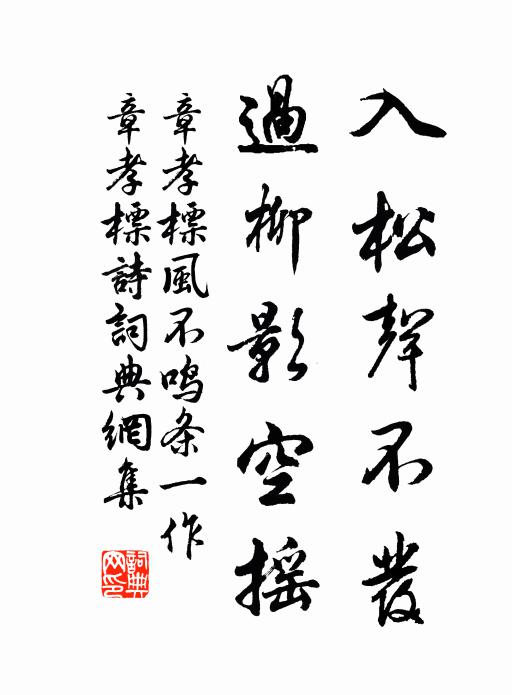 入松聲不發
過柳影空摇
章孝標風不鸣条一作
章孝標詩詞典網集
詞典网印